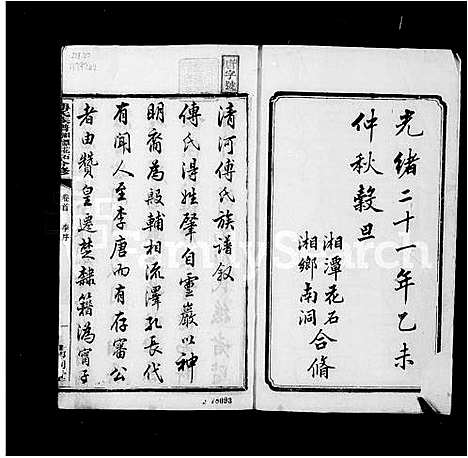 光緒二十一年乙未
仲秋穀旦
湘潭花石
湘鄉南洞
合脩
唐字號
清河傅氏族譜敘
傅氏得姓肇自靈巖以神
明裔為殷輔相流澤孔長代
有聞人至李唐而有存審公
者由贊皇遷楚隸籍溈甯子
卷首
FamilySearch